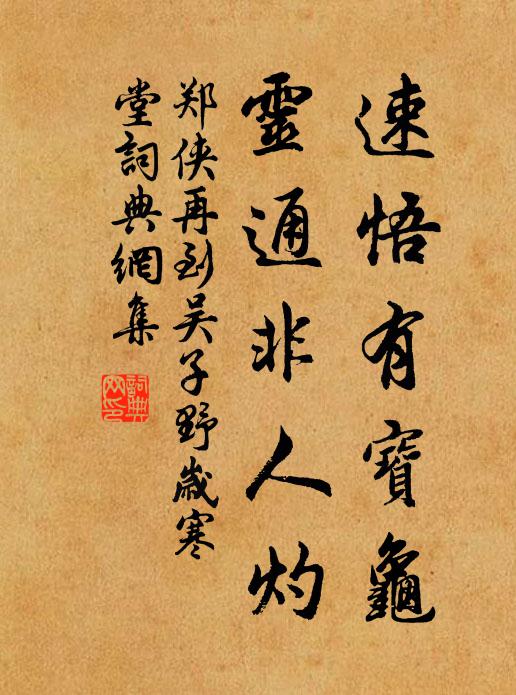 速悟有寶龜
靈通非人灼
郑侠再到吴子野歲寒
堂詞典網集
詞典
网印